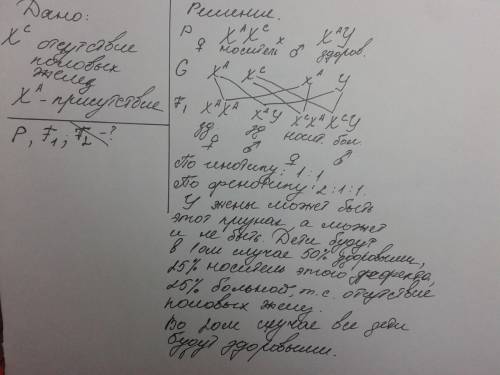 Дано:
X^c отсутствие
половых
желез
X^A - присутствие
P, F1; F2 -?
Решение.
P ♀ X^A X^c × ♂ X^A Y
носитель здоров.
G X^A X^c X^A Y
F1 X^A X^A X^A Y X^c X^A X^c Y
зд. зд носит. бол.
♀ ♂ ♀ ♂
По генотипу: 1:1
По фенотипу: 2:1:1.
У жены может быть
этот признак, а может
и не быть. Дети будут
в 1ом случае 50% здоровыми,
25% носитель этого дефекта,
25% больной, т.е. отсутствие
половых желез.
Во 2ом случае все дети
будут здоровыми.